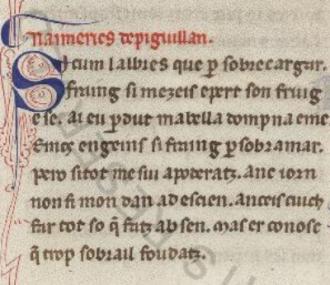 Naimerics depiguillan.
Si cum lalbres que ꝑ sobrecargar.
frang si mezeis epert son frug
e se. ai eu ꝑdut ma bella domp na eme
Emos engeins si frang ꝑ sobramar.
pero sitot me sui apoderatz. anc iorn
non fi mon dan ad escien. anceis cuich
far tot so q̃ fatz ab sen. mas er conosc
q̃ trop sobral foudatz.